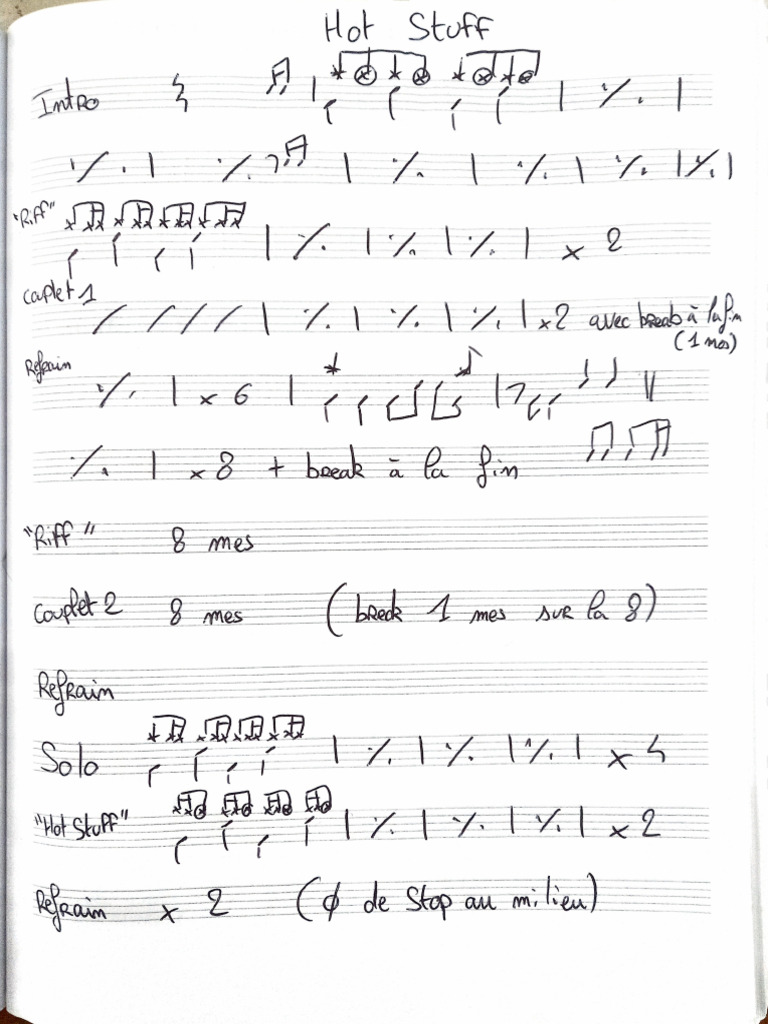 Hot Stuff
Intro
"Riff" x 2
Couplet 1 x2 avec break à la fin
(1 mes)
Refrain x 6
x 8 + break à la fin
"Riff" 8 mes
Couplet 2 8 mes (break 1 mes sur la 8)
Refrain
Solo x 4
"Hot Stuff" x 2
Refrain x 2 (ϕ de Stop au milieu)